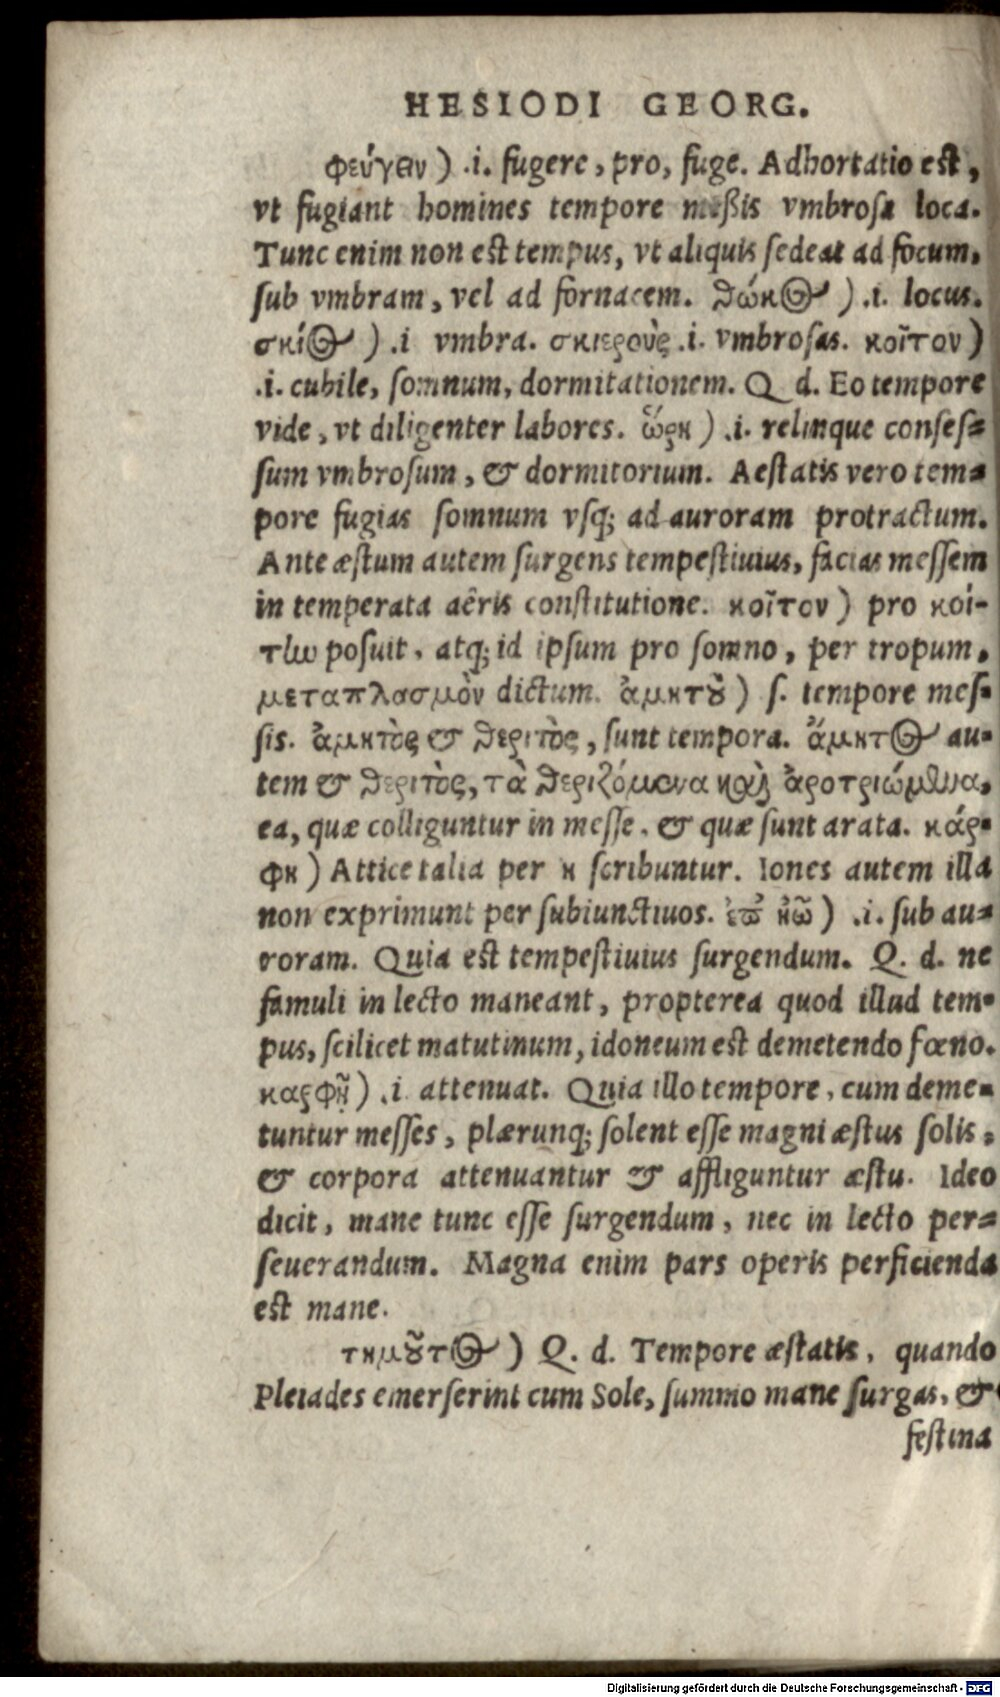 HESIODI GEORG.
φεύγειν) .i. fugere, pro, fuge. Adhortatio est,
vt fugiant homines tempore meßis vmbrosa loca.
Tunc enim non est tempus, vt aliquis sedeat ad focum,
sub vmbram, vel ad fornacem. θώκος) .i. locus.
σκίος) .i vmbra. σκιεροὺς .i. vmbrosas. κοῖτον)
.i. cubile, somnum, dormitationem. Q d. Eo tempore
vide, vt diligenter labores. ὥρη) .i. relinque conses=
sum vmbrosum, & dormitorium. Aestatis vero tem=
pore fugias somnum vsq; ad auroram protractum.
Ante æstum autem surgens tempestiuius, facias messem
in temperata aëris constitutione. κοῖτον) pro κοί-
την posuit, atq; id ipsum pro somno, per tropum,
μεταπλασμὸν dictum. ἀμητοῦ) s. tempore mes=
sis. ἀμητὸς & θεριτὸς, sunt tempora. ἄμητος au=
tem & θεριτὸς, τὰ θεριζόμενα καὶ ἀροτριώμενα,
ea, quæ colliguntur in messe, & quæ sunt arata. κάρ=
φη) Attice talia per η scribuntur. Iones autem illa
non exprimunt per subiunctiuos. ἐπ' ἠῶ) .i. sub au=
roram. Quia est tempestiuius surgendum. Q. d. ne
famuli in lecto maneant, propterea quod illud tem=
pus, scilicet matutinum, idoneum est demetendo fœno.
καρφῇ) .i attenuat. Quia illo tempore, cum deme=
tuntur messes, plærunq; solent esse magni æstus solis,
& corpora attenuantur & affliguntur æstu. Ideo
dicit, mane tunc esse surgendum, nec in lecto per=
seuerandum. Magna enim pars operis perficienda
est mane.
τημοῦτος) Q. d. Tempore æstatis, quando
Pleiades emerserint cum Sole, summo mane surgas, &
festina
Digitalisierung gefördert durch die Deutsche Forschungsgemeinschaft - DFG